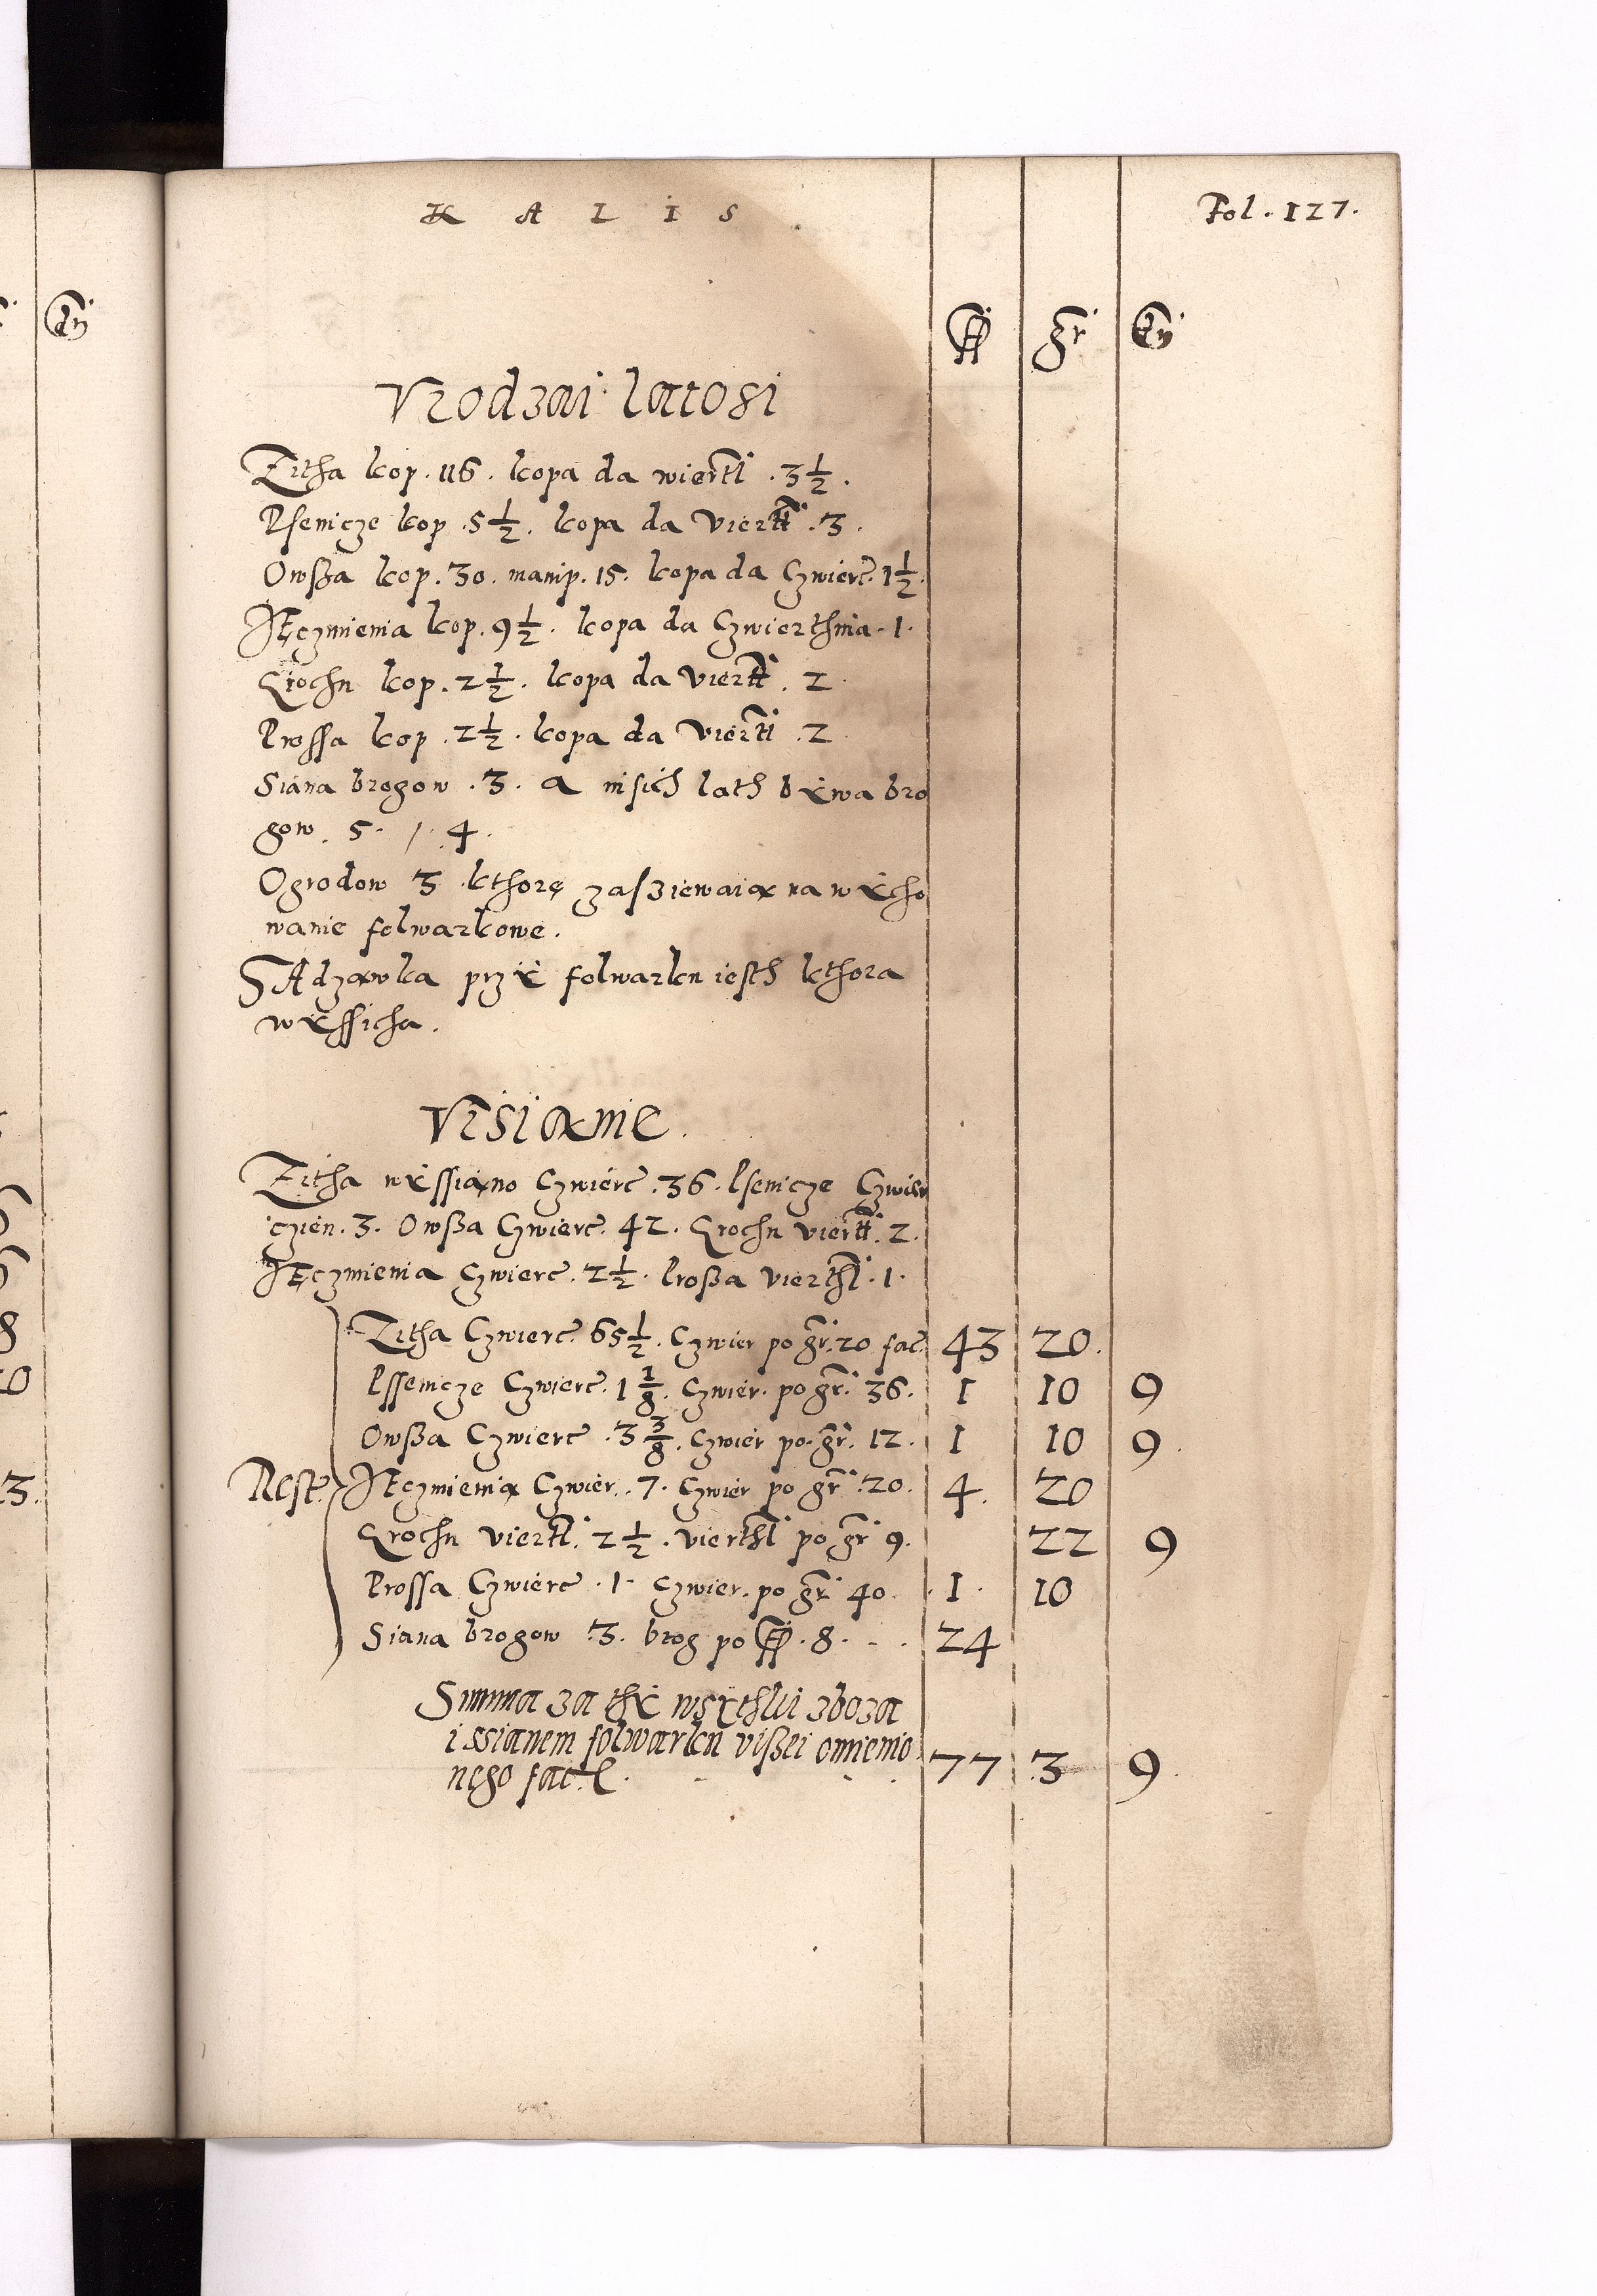 K A L I S
Fol. 127.
fl gr dn
Vrodzai latosi
Zitha kop. 116. kopa da wiertl. 3 1/2.
Psenicze kop. 5 1/2. kopa da viertl. 3.
Owßa kop. 30. manip. 15. kopa da Czwierc. 1 1/2.
Jęczmienia kop. 9 1/2. kopa da Czwierthnia. 1.
Grochu kop. 2 1/2. kopa da viertl. 2
Prossa kop. 2 1/2. kopa da viertl. 2
Siana brogow. 3. a inſich lath bÿwa bro
gow. 5. / 4.
Ogrodow 3 kthorę zaſziewaią na wÿcho
wanie folwarkowe.
SAdzawka przÿ folwarku iesth kthora
wÿſſicha.
Visianie.
Zitha wÿſſiano Czwierc. 36. Psenicze Czwier
czien. 3. Owßa Czwierc. 42. Grochu viertl. 2.
Jęczmienia Czwierc. 2 1/2. Proßa vierthl. 1.
Zitha Czwierc. 65 1/2. Czwier po gr. 20 fac. 43 20.
Pſſenicze Czwierc. 1 1/8. Czwier. po gr. 36. 1 10 9
Owßa Czwierc. 3 3/8. Czwier po gr. 12. 1 10 9.
Rest. Jęczmienia Czwier. 7. Czwier po gr. 20. 4. 20
Grochu viertl. 2 1/2. vierthl po gr 9. 22 9
Prossa Czwierc. 1. Czwier. po gr 40. 1. 10
Siana brogow 3. brog po fl. 8. 24
Summa za thÿ wsÿthki zboza
i ssianem folwarku vißei omienio
nego fac. 77 3 9.